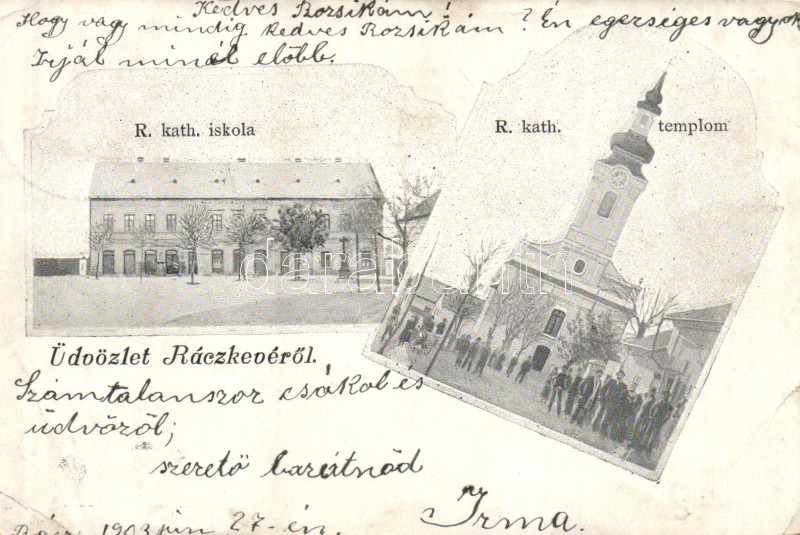 Kedves Rozsikám!
Hogy vagy mindig kedves Rozsikám? Én egészséges vagyok
Irjál minél előbb.
R. kath. iskola
R. kath. templom
darabanth.com
Üdvözlet Ráczkevéről.
Számtalanszor csókol és
üdvözöl;
szerető barátnőd
Irma.
1903 jun 27-én.